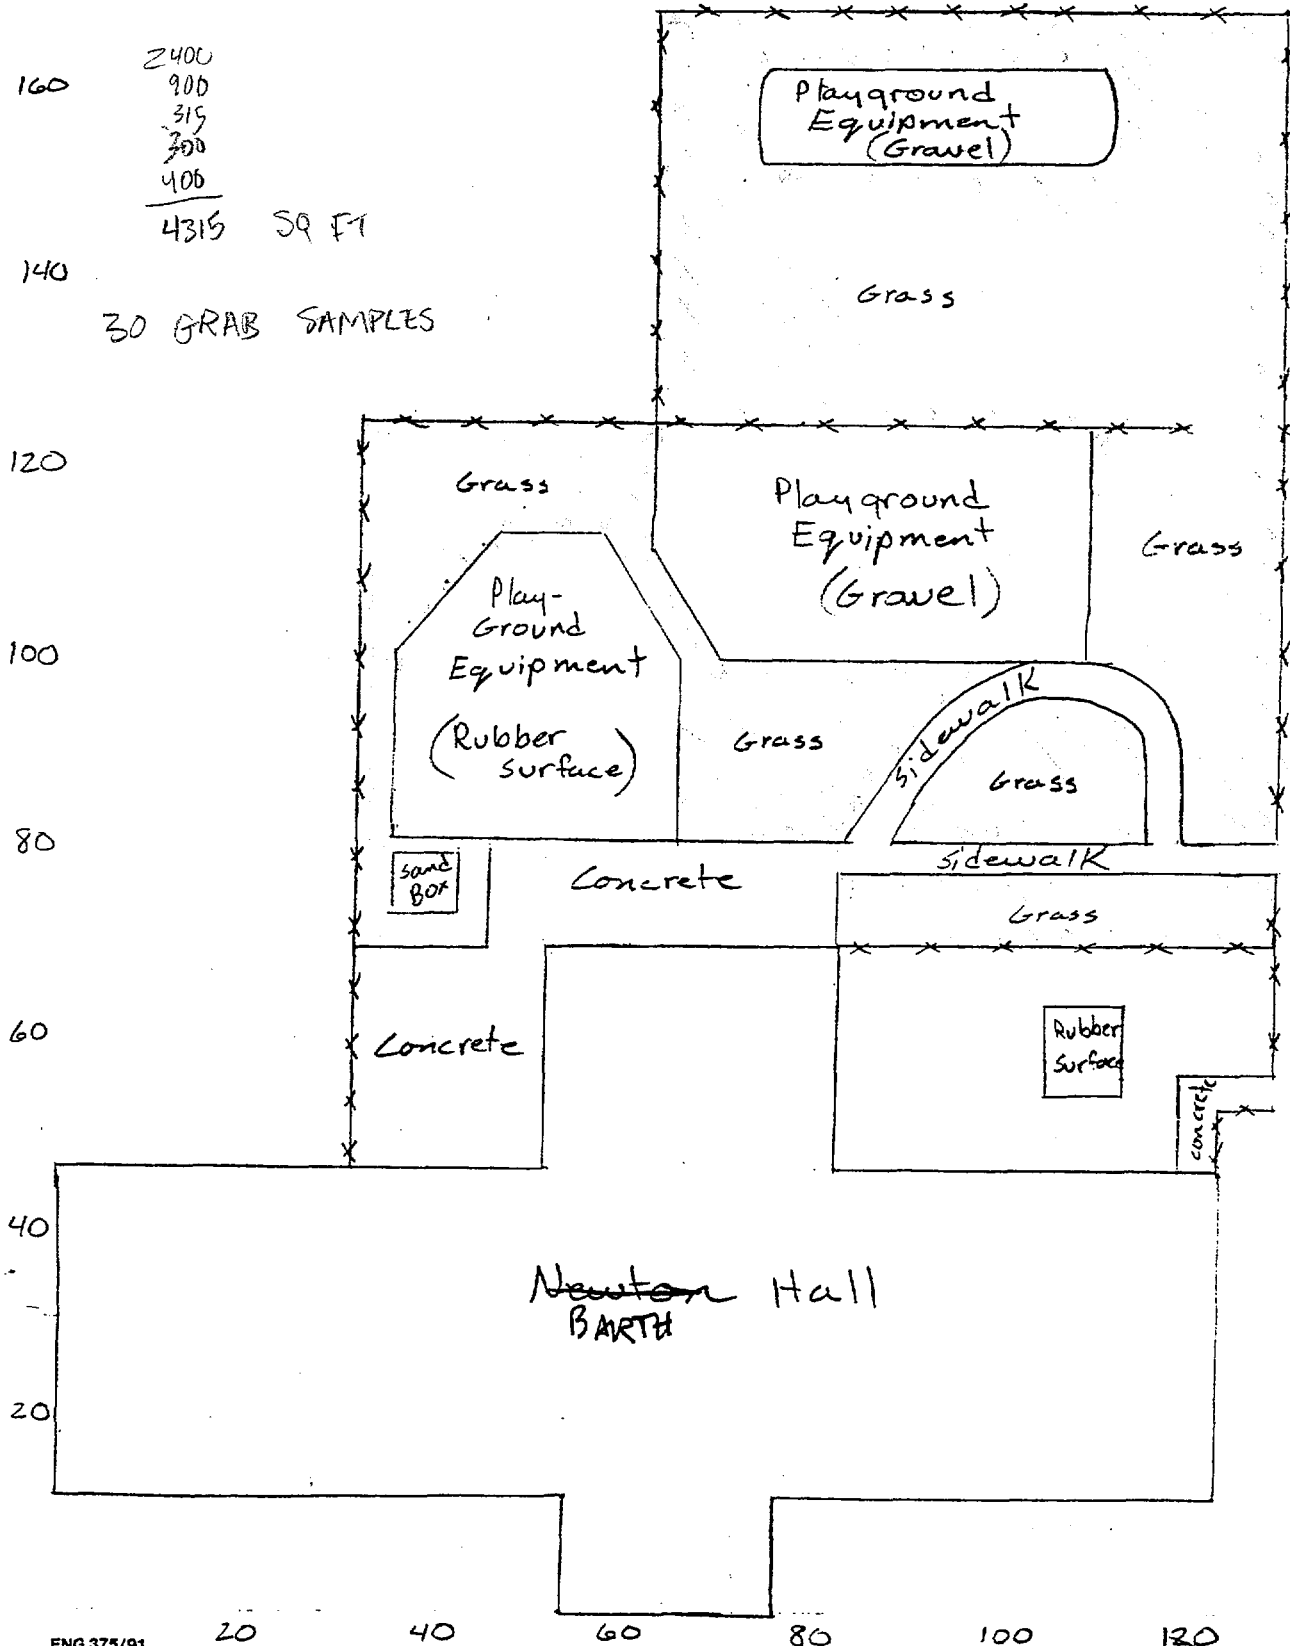 2400
160
900
315
300
400
4315 SQ FT
140
30 GRAB SAMPLES
Playground
Equipment
(Gravel)
Grass
120
Grass
Playground
Equipment
(Gravel)
Grass
Play-
Ground
Equipment
(Rubber
Surface)
100
Sidewalk
Grass
Grass
80
Sand
Box
Concrete
Sidewalk
Grass
60
Concrete
Rubber
Surface
concrete
40
Newton Hall
BARTH
20
ENG 375/91
20 40 60 80 100 120